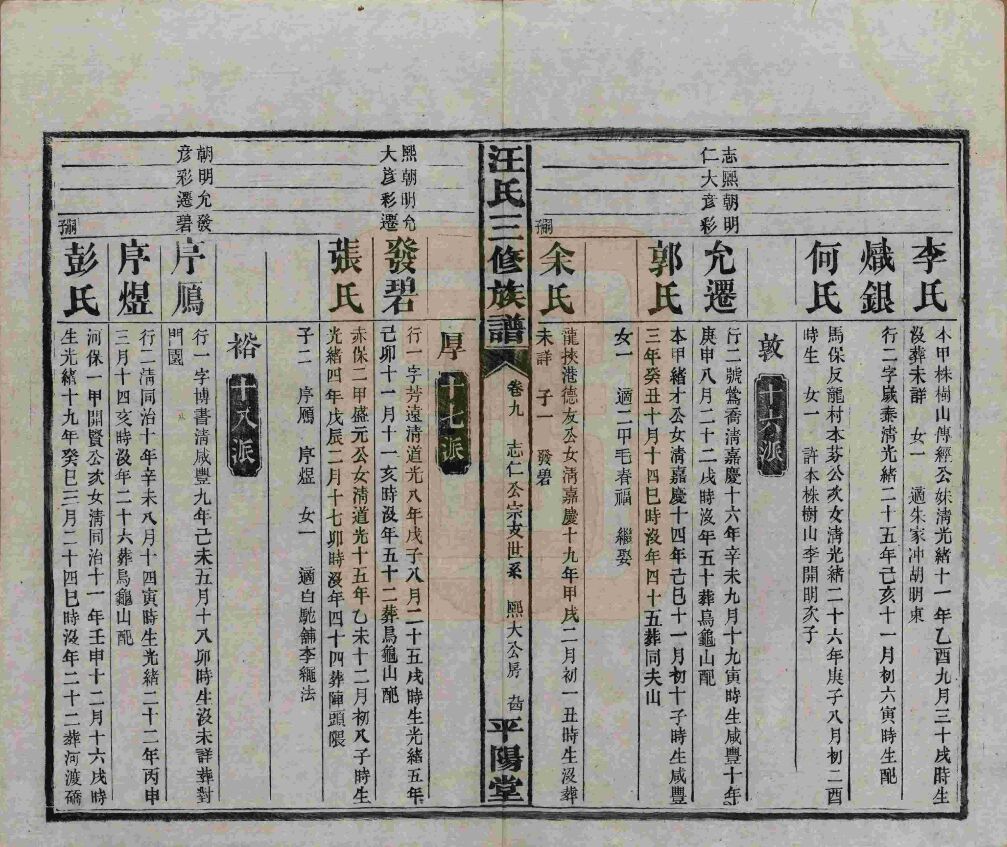 李氏
本甲株樹山傳經公妹淸光緒十一年乙酉九月三十戌時生
沒葬未詳 女一 適朱家冲胡明東
熾銀
行二字歲泰淸光緒二十五年己亥十一月初六寅時生配
何氏
馬保反龍村本芬公次女淸光緒二十六年庚子八月初二酉
時生 女一 許本株樹山李開明次子
敦 十六派
志熙朝明
仁大彦彩
允遷
行二號鶯喬淸嘉慶十六年辛未九月十九寅時生咸豐十年
庚申八月二十二戌時沒年五十葬烏龜山配
郭氏
本甲緒才公女淸嘉慶十四年己巳十一月初十子時生咸豐
三年癸丑十月十四巳時沒年四十五葬同夫山
女一 適二甲毛春福 繼娶
嗣
余氏
龍挾港德友公女淸嘉慶十九年甲戌二月初一丑時生沒葬
未詳 子一 發碧
汪氏三修族譜 卷九 志仁公宗支世系 熙大公房 平陽堂
厚 十七派
熙朝明允
大彦彩遷
發碧
行一字芳遠淸道光八年戊子八月二十五戌時生光緒五年
己卯十一月十一亥時沒年五十二葬烏龜山配
張氏
赤保二甲盛元公女淸道光十五年乙未十二月初八子時生
光緒四年戊辰二月十七卯時沒年四十四葬陣頭隈
子二 序鴈 序煜 女一 適白馳舖李繩法
裕 十八派
朝明允發
彦彩遷碧
序鴈
行一字博書淸咸豐九年己未五月十八卯時生沒未詳葬對
門園
序煜
行二淸同治十年辛未八月十四寅時生光緒二十二年丙申
三月十四亥時沒年二十六葬烏龜山配
嗣
彭氏
河保一甲開賢公次女淸同治十一年壬申十二月十六戌時
生光緒十九年癸巳三月二十四巳時沒年二十二葬河渡礄